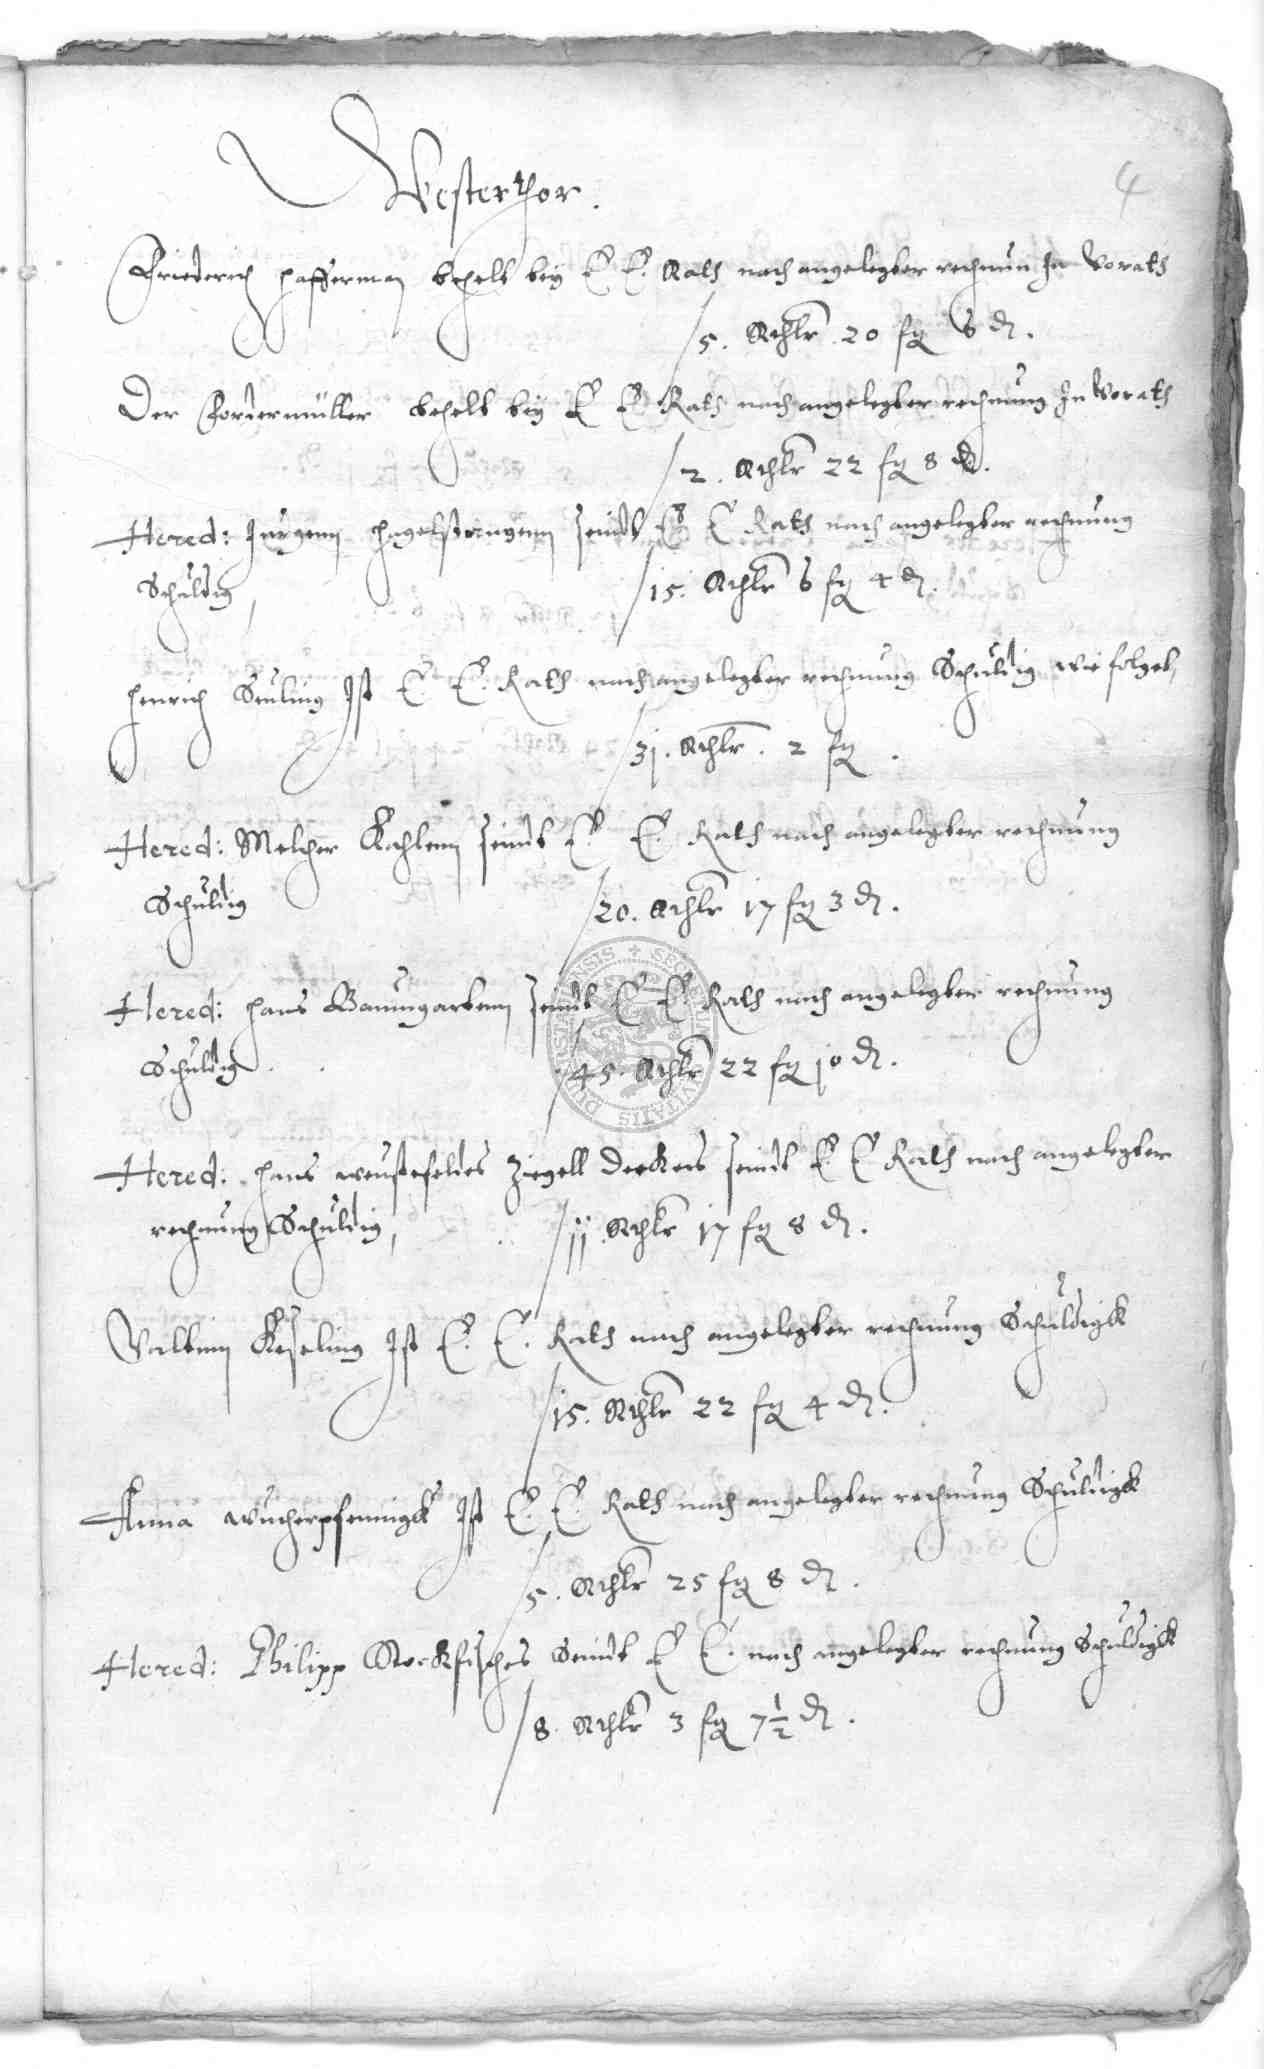 Westerthor.
4
Friederich Hafferman behelt bey E. E. Rath nach angelegter rechnun In Vorath
5. Rthlr 20 fg 6 d.
Der Fordermüller behelt bey E E Rath nach angelegter rechnung In Vorath
2. Rthlr 22 fg 8 d.
Hered: Jurgenn Hagelstangenn seindt E E Rath nach angelegter rechnung
Schuldig,
15. Rthlr 6 fg 4 d.
Henrich Seuling Ist E. E. Rath nach angelegter rechnung Schuldig wie folget,
31. Rthlr. 2 fg.
Hered: Melcher Kahlenn seindt E. E. Rath nach angelegter rechnung
Schuldig
20. Rthlr 17 fg 3 d.
Hered: Hans Baumgartenn seindt E E Rath nach angelegter rechnung
Schuldig.
45. Rthlr 22 fg 10 d.
Hered: Hans weustefeldes Ziegell Deckers seindt E. E Rath nach angelegter
rechnung Schuldig,
11. Rthlr 17 fg 8 d.
Valtinn Keseling Ist E. E. Rath nach angelegter rechnung Schuldigk
15. Rthlr 22 fg 4 d.
Anna wucherpfennigk Ist E. E. Rath nach angelegter rechnung Schuldigk
5. Rthlr 25 fg 8 d.
Hered: Philipp Stockfisches Seindt E E. nach angelegter rechnung Schuldigk
8. Rthlr 3 fg 7 1/2 d.